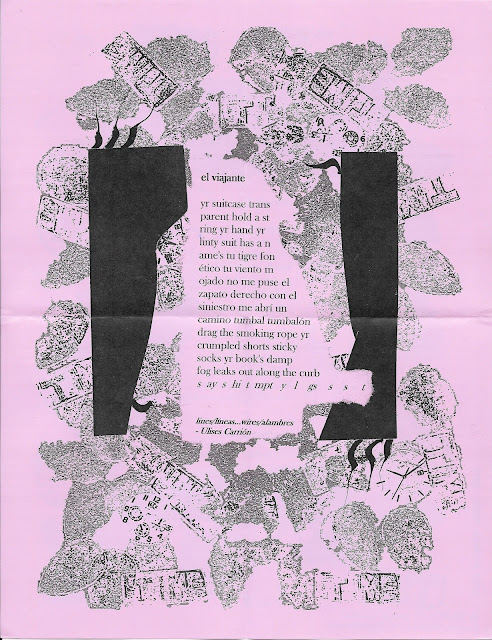 el viajante
yr suitcase trans
parent hold a st
ring yr hand yr
linty suit has a n
ame's tu tigre fon
ético tu viento m
ojado no me puse el
zapato derecho con el
siniestro me abrí un
camino tumbal tumbalón
drag the smoking rope yr
crumpled shorts sticky
socks yr book's damp
fog leaks out along the curb
s ay s hi t mpt y l gs s s t
lines/líneas...wires/alambres
- Ulises Carrión